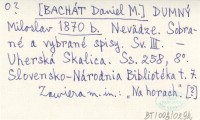 0? [BACHÁT Daniel M.] DUMNÝ
Miloslav 1870 b. Nevädze. Sobra-
né a vybrané spisy. Sv. III. –
Uherská Skalica. Ss. 258, 8°.
Slovensko-Národnia Bibliotéka t. 7
Zawiera m.in.: „Na horách". [?]